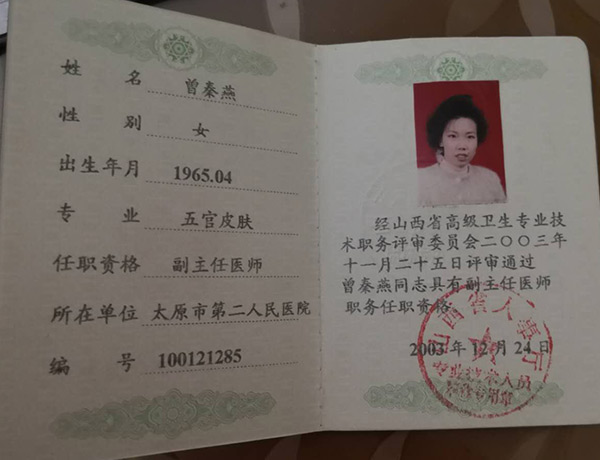 姓 名 曾秦燕
性 别 女
出生年月 1965.04
专 业 五官皮肤
任职资格 副主任医师
所在单位 太原市第二人民医院
编 号 100121285
经山西省高级卫生专业技
术职务评审委员会二〇〇三年
十一月二十五日评审通过
曾秦燕同志具有副主任医师
职务任职资格
2003 年 12 月 24 日
山西省人事厅
专业技术人员